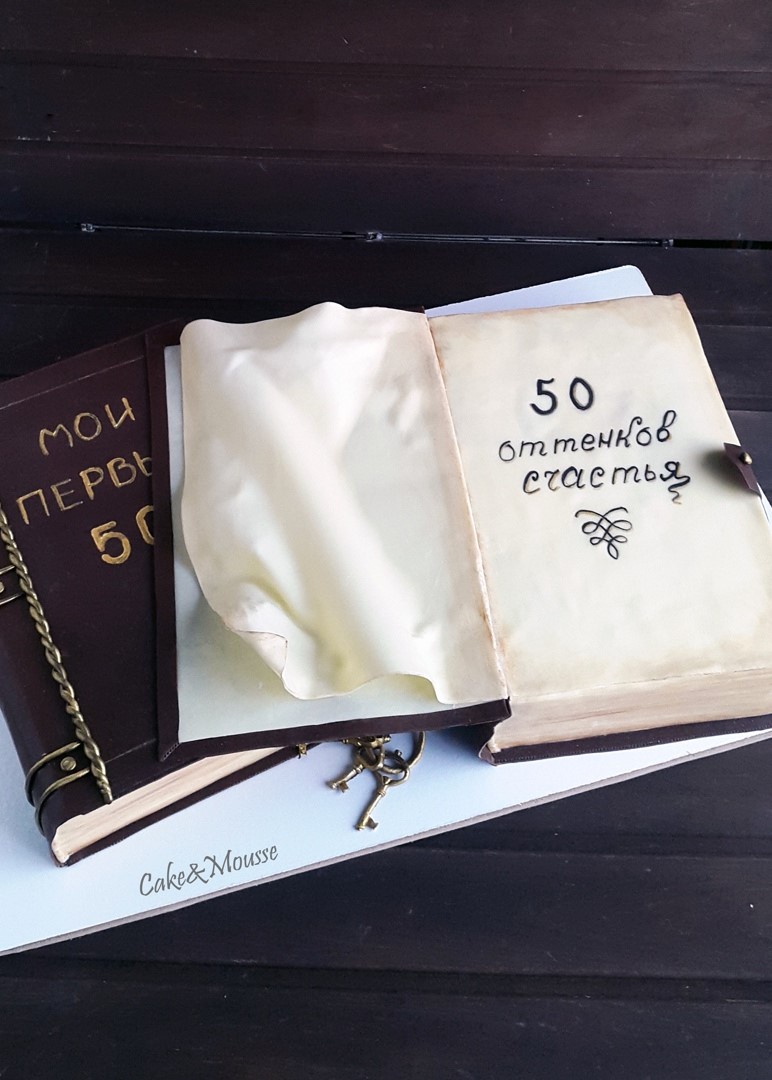 мои
ПЕРВЫ
50
50
оттенков
счастья
Cake&Mousse